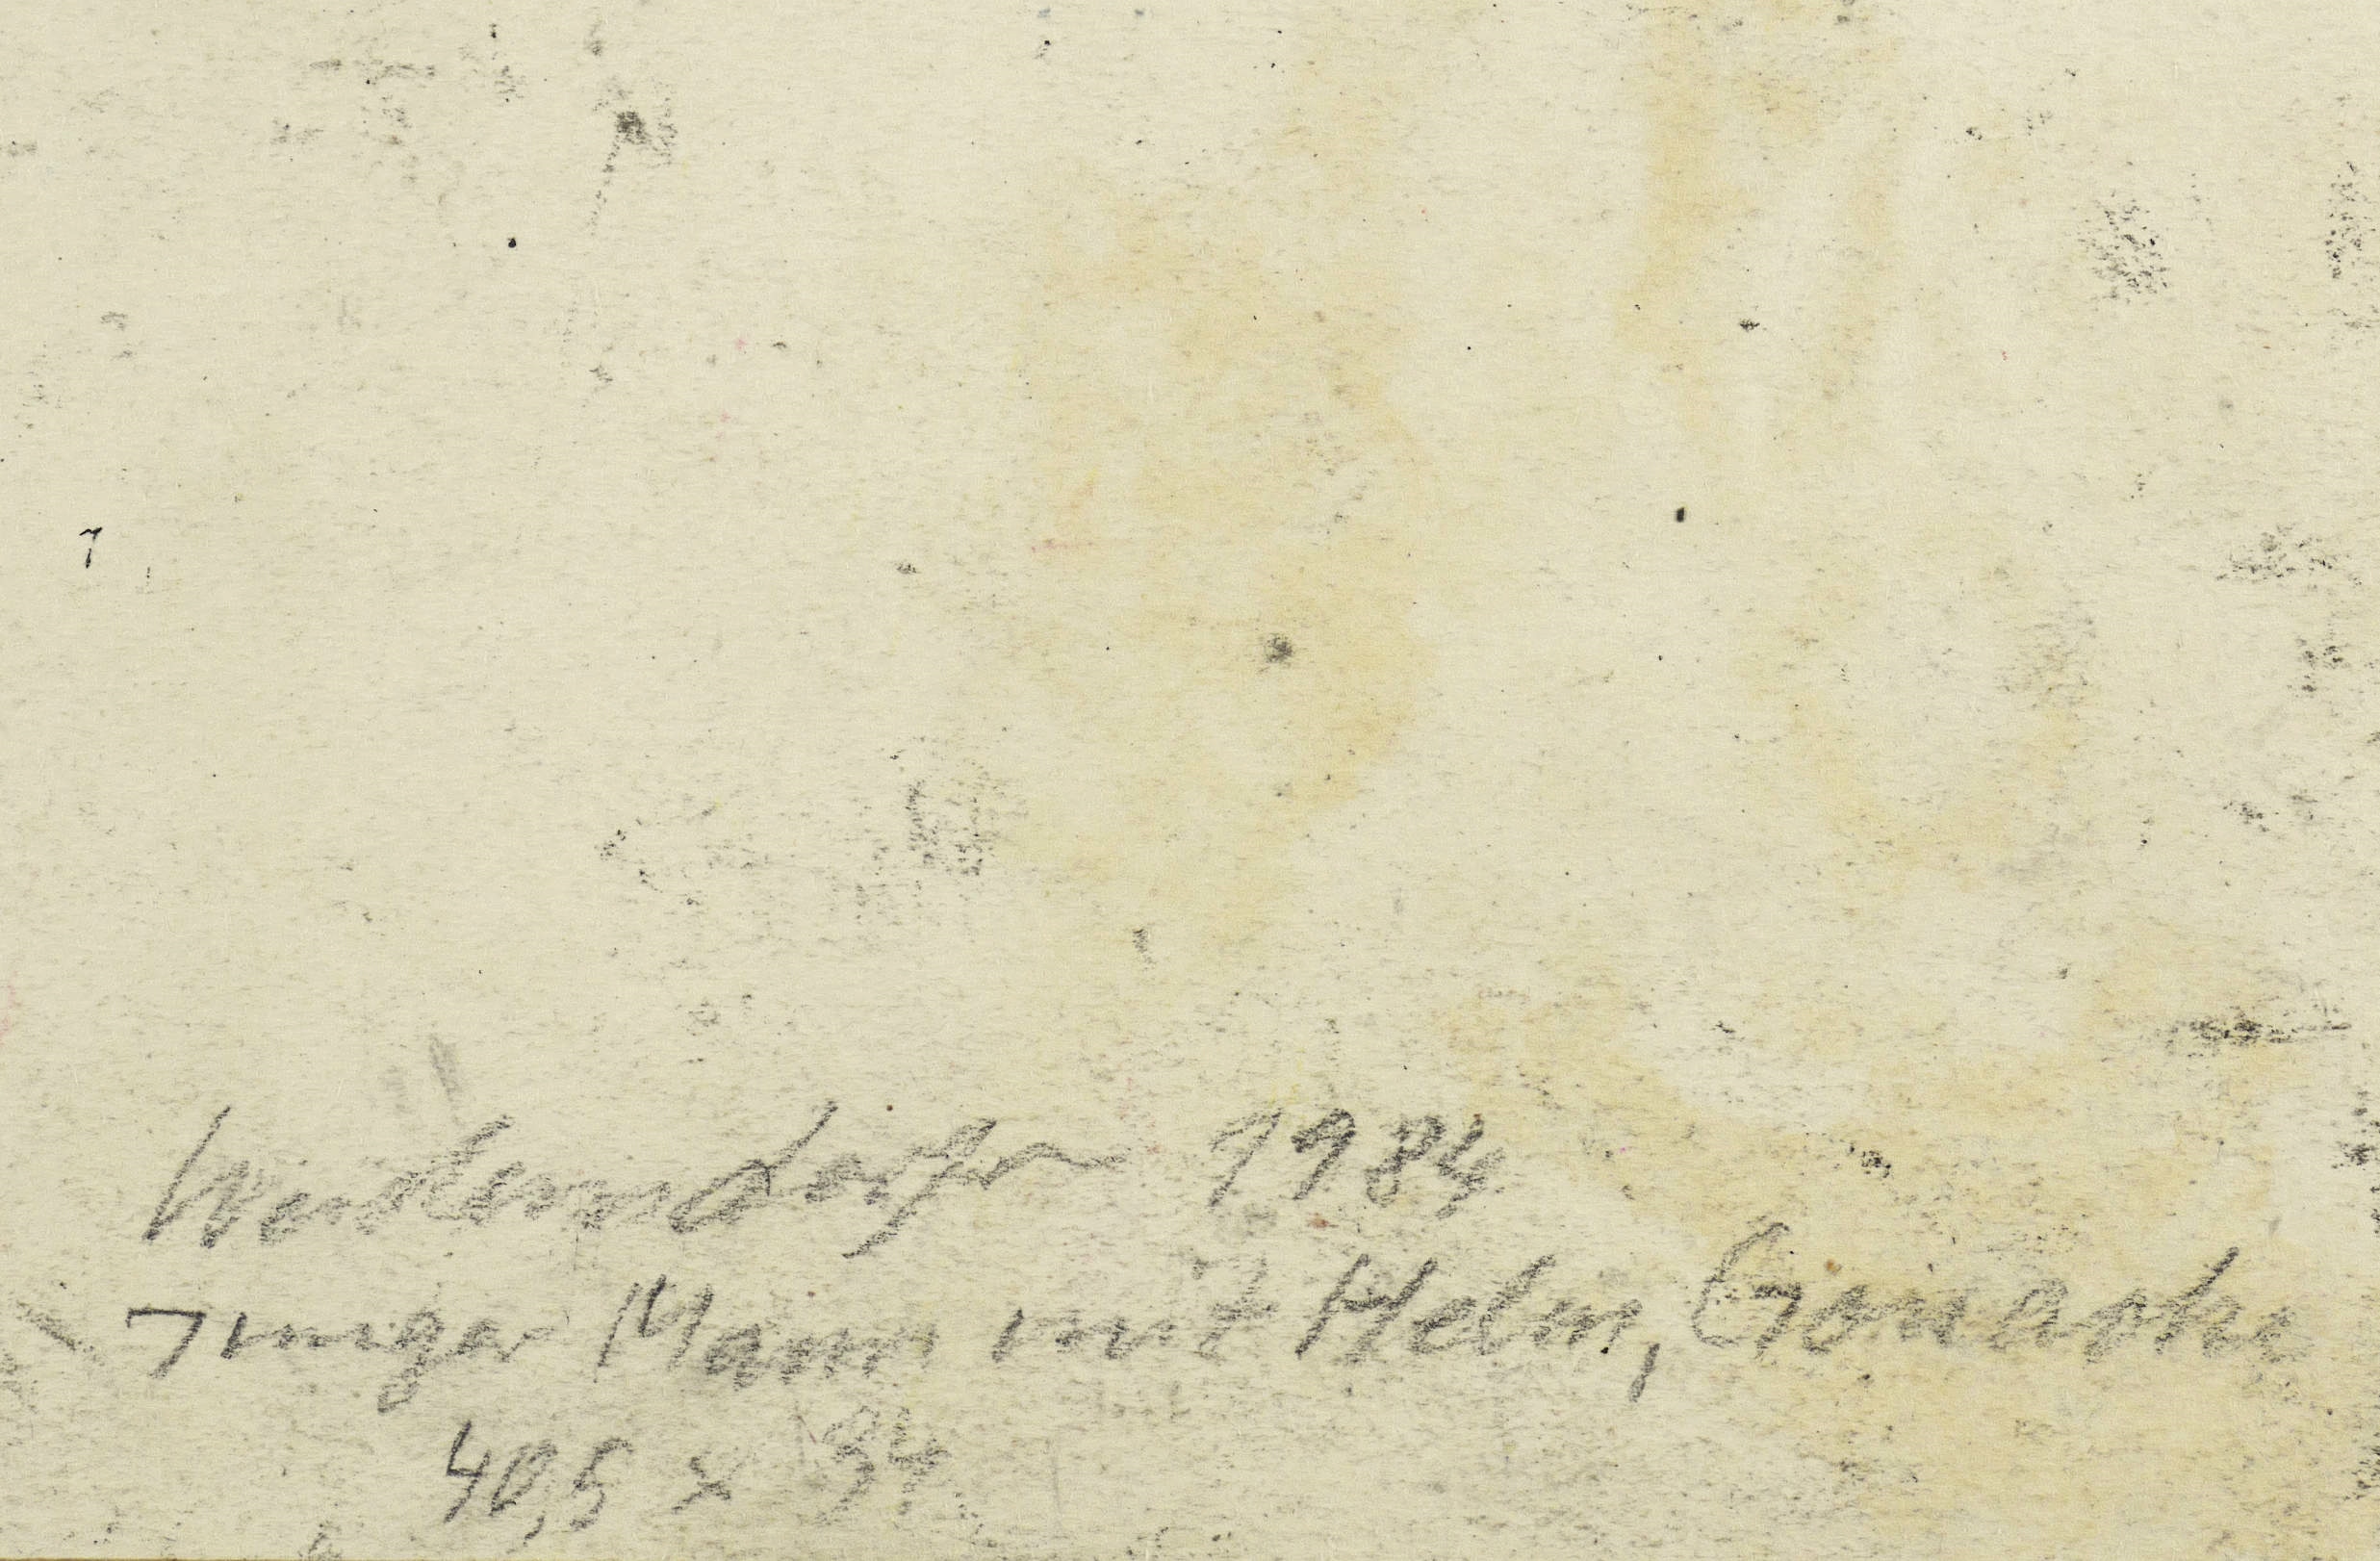 Weidensdorfer 1984
Junger Mann mit Helm, Gouache
40,5 x 34